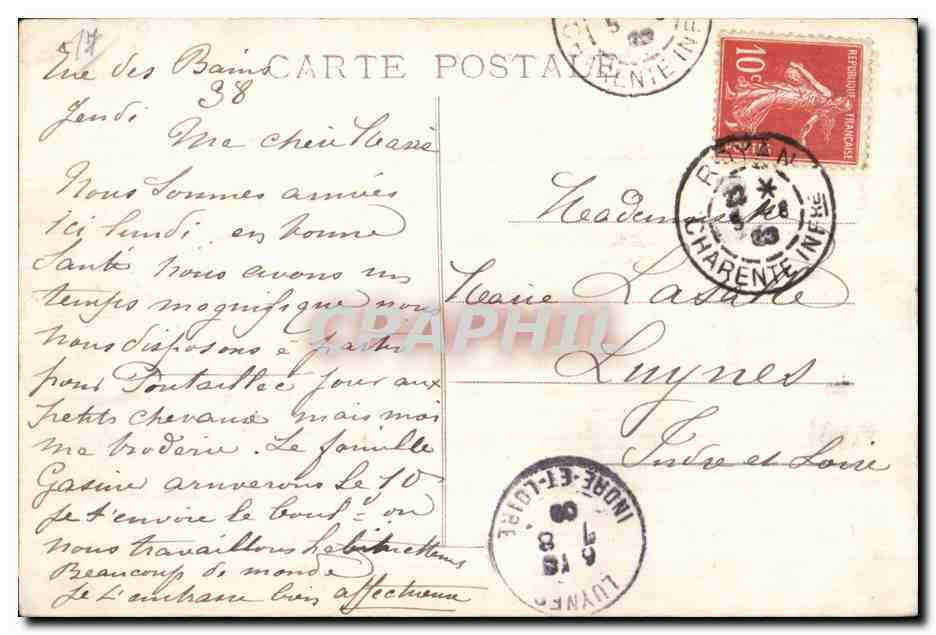 17
Rue des Bains
38
CARTE POSTALE
Jeudi
Ma chère Marie
Nous sommes arrivés
ici lundi en bonne
Santé nous avons un
temps magnifique nous
nous disposons à partir
pour Pontaillac jouer aux
petits chevaux mais moi
ma broderie. La famille
Gasine arriverons le 10
Je t'envoie le bout où
nous travaillons
Beaucoup de monde
Je t'embrasse bien
Mademoiselle
Marie Lasalle
Luynes
Indre et Loire
REPUBLIQUE FRANÇAISE
10c
POSTES
CHARENTE INFRE
ROYAN
CHARENTE INFRE
LUYNES
INDRE-ET-LOIRE
CPAPHIL